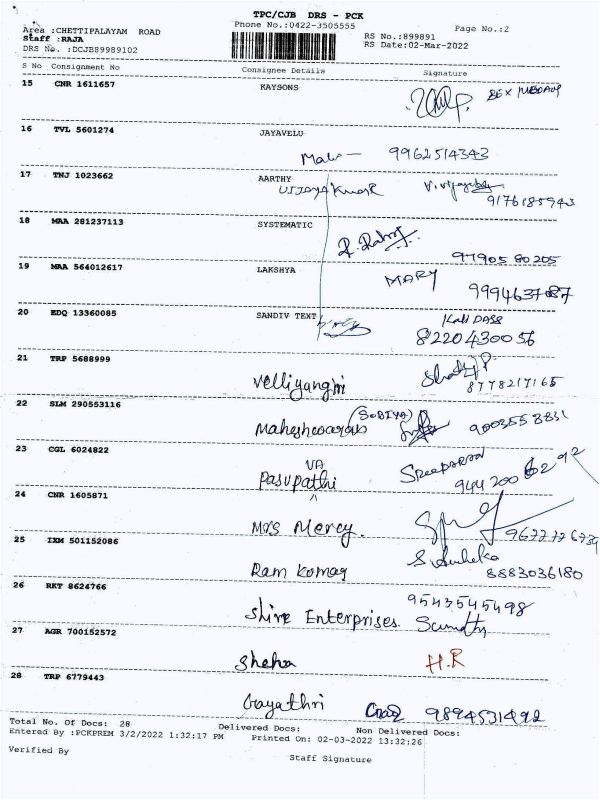 TPC/CJB DRS - PCK
Area :CHETTIPALAYAM ROAD Phone No.:0422-3505555 Page No.:2
Staff :RAJA RS No.:899891
DRS No. :DCJB89989102 RS Date:02-Mar-2022
S No Consignment No Consignee Details Signature
15 CNR 1611657 KAYSONS
16 TVL 5601274 JAYAVELU
9962514343
17 TNJ 1023662 AARTHY
VIJAYAKUMAR 9176185943
18 MAA 281237113 SYSTEMATIC
9790580205
19 MAA 564012617 LAKSHYA MARY
9994637087
20 EDQ 13360085 SANDIV TEXT Kali DASS
8220430056
21 TRP 5688999
Velliyangiri 8778217165
22 SLM 290553116
(SOBIYA)
9003558831
23 CGL 6024822
VA
Pasupatthi
24 CNR 1605871
Mrs Mercy.
25 IXM 501152086
Ram Komar 8883036180
26 RKT 8624766 9543545498
Shire Enterprises.
27 AGR 700152572
Sheha H.R
28 TRP 6779443
Gayathri 9894531492
Total No. Of Docs: 28 Delivered Docs: Non Delivered Docs:
Entered By :PCKPREM 3/2/2022 1:32:17 PM Printed On: 02-03-2022 13:32:26
Verified By Staff Signature